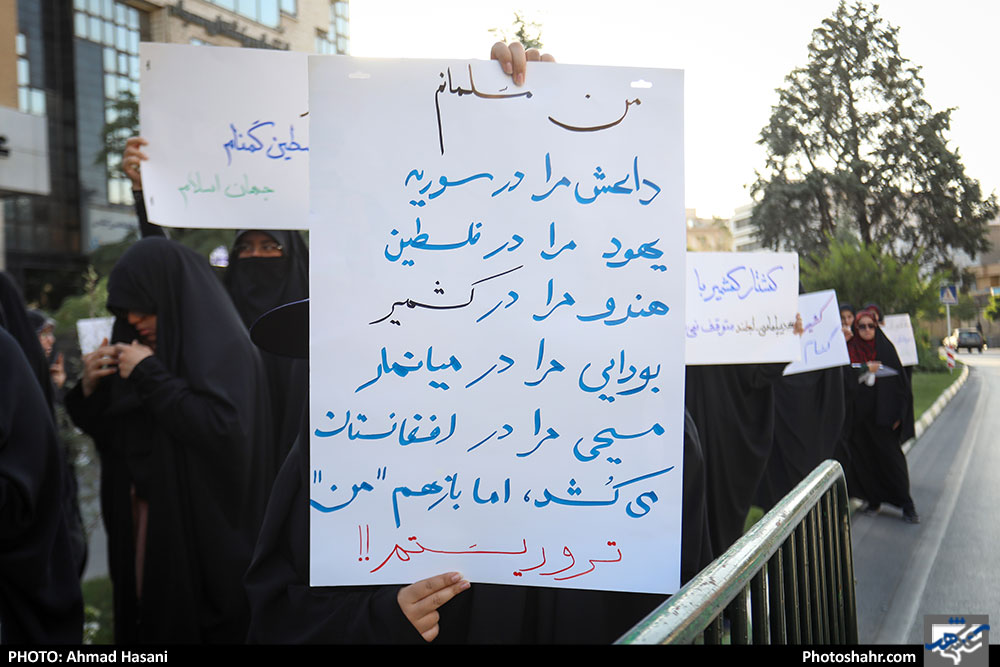 من مسلمانم
داعش مرا در سوریه
یهود مرا در فلسطین
هندو مرا در کشمیر
بودایی مرا در میانمار
مسیحی مرا در افغانستان
می کُشد، اما بازهم "من"
تروریستم!!
گمنام
جهان اسلام
کشتار کشمیر با
متوقف
کشمیر
گمنام
PHOTO: Ahmad Hasani
Photoshahr.com